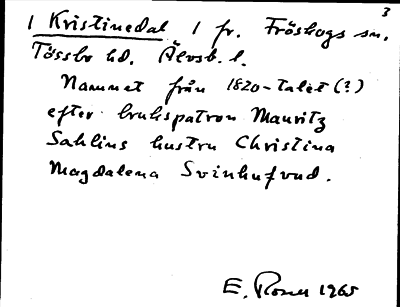 3
1 Kristinedal 1 fr. Fröskogs sn.
Tössbo hd. Älvsb. l.
Namnet från 1820-talet (?)
efter brukspatron Mauritz
Sahlins hustru Christina
Magdalena Svinhufvud.
E. Rosen 1965